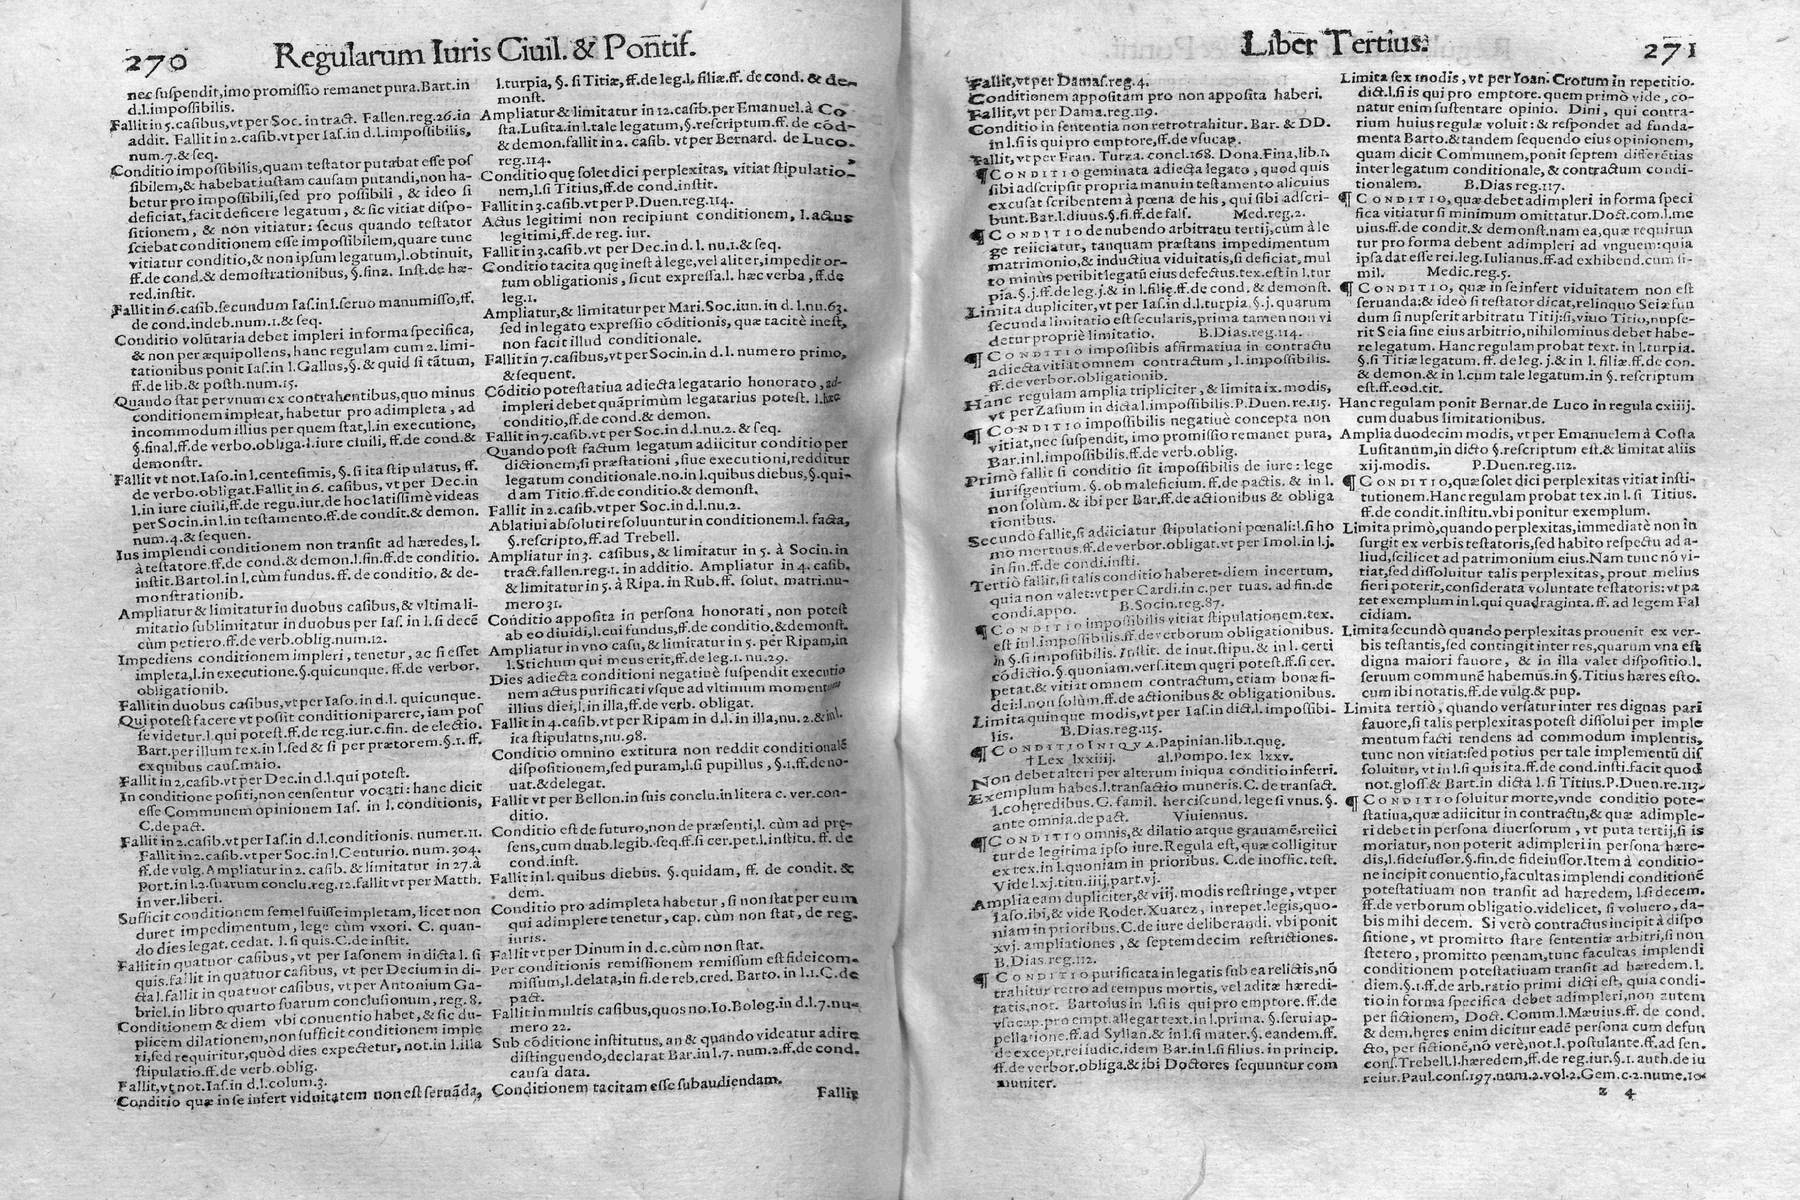 270 Regularum Iuris Ciuil. & Pontif.
nec suspendit, imo promissio remanet pura. Bart. in
d.l. impossibilis.
Fallit in 5. casibus, vt per Soc. in tract. Fallen. reg. 26. in
addit. Fallit in 2. casib. vt per Ias. in d.l. impossibilis,
num. 7. & seq.
Conditio impossibilis, quam testator putabat esse pos
sibilem, & habebat iustam causam putandi, non ha-
betur pro impossibili, sed pro possibili, & ideo si
deficiat, facit deficere legatum, & sic vitiat dispo-
sitionem, & non vitiatur: secus quando testator
sciebat conditionem esse impossibilem, quare tunc
vitiatur conditio, & non ipsum legatum, l. obtinuit,
ff. de cond. & demostrationibus, §. fina. Inst. de hæ-
red. instit.
Fallit in 6. casib. secundum Ias. in l. seruo manumisso, ff.
de cond. indeb. num. 1. & seq.
Conditio volūtaria debet impleri in forma specifica,
& non per æquipollens, hanc regulam cum 2. limi-
tationibus ponit Ias. in l. Gallus, §. & quid si tātum,
ff. de lib. & posth. num. 15.
Quando stat per vnum ex contrahentibus, quo minus
conditionem impleat, habetur pro adimpleta, ad
incommodum illius per quem stat, l. in executione,
§. final. ff. de verbo. obliga. l. iure ciuili, ff. de cond. &
demonstr.
Fallit vt not. Iaso. in l. centesimis, §. si ita stipulatus, ff.
de verbo. obligat. Fallit in 6. casibus, vt per Dec. in
l. in iure ciuili, ff. de regu. iur. de hoc latissimè videas
per Socin. in l. in testamento. ff. de condit. & demon.
num. 4. & sequen.
Ius implendi conditionem non transit ad hæredes, l.
à testatore. ff. de cond. & demon. l. fin. ff. de conditio.
instit. Bartol. in l. cùm fundus. ff. de conditio. & de-
monstrationib.
Ampliatur & limitatur in duobus casibus, & vltima li-
mitatio sublimitatur in duobus per Ias. in l. si decē
cùm petiero. ff. de verb. oblig. num. 12.
Impediens conditionem impleri, tenetur, ac si esset
impleta, l. in executione. §. quicunque. ff. de verbor.
obligationib.
Fallit in duobus casibus, vt per Iaso. in d.l. quicunque.
Qui potest facere vt possit conditioni parere, iam pos
se videtur. l. qui potest. ff. de reg. iur. c. fin. de electio.
Bart. per illum tex. in l. sed & si per prætorem. §. 1. ff.
ex quibus caus. maio.
Fallit in 2. casib. vt per Dec. in d.l. qui potest.
In conditione positi, non censentur vocati: hanc dicit
esse Communem opinionem Ias. in l. conditionis,
C. de pact.
Fallit in 2. casib. vt per Ias. in d.l. conditionis. numer. 11.
Fallit in 2. casib. vt per Soc. in l. Centurio. num. 304.
ff. de vulg. Ampliatur in 2. casib. & limitatur in 27. à
Port. in l. 2. suarum conclu. reg. 12. fallit vt per Matth.
in ver. liberi.
Sufficit conditionem semel fuisse impletam, licet non
duret impedimentum, lege cùm vxori. C. quan-
do dies legat. cedat. l. si quis. C. de instit.
Fallit in quatuor casibus, vt per Iasonem in dicta l. si
quis. fallit in quatuor casibus, vt per Decium in di-
cta l. fallit in quatuor casibus, vt per Antonium Ga-
briel. in libro quarto suarum conclusionum, reg. 8.
Conditionem & diem vbi conuentio habet, & sic du-
plicem dilationem, non sufficit conditionem imple
ri, sed requiritur, quòd dies expectetur, not. in l. illa
stipulatio. ff. de verb. oblig.
Fallit, vt not. Ias. in d.l. colum. 3.
Conditio quæ in se infert viduitatem non est seruāda,
l. turpia, §. si Titiæ, ff. de leg. l. filiæ. ff. de cond. & de-
monst.
Ampliatur & limitatur in 12. casib. per Emanuel. à Co
sta. Lusita. in l. tale legatum, §. rescriptum. ff. de cōd-
& demon. fallit in 2. casib. vt per Bernard. de Luco.
reg. 114.
Conditio quę solet dici perplexitas, vitiat stipulatio-
nem, l. si Titius, ff. de cond. instit.
Fallit in 3. casib. vt per P. Duen. reg. 114.
Actus legitimi non recipiunt conditionem, l. actus
legitimi, ff. de reg. iur.
Fallit in 3. casib. vt per Dec. in d.l. nu. 1. & seq.
Conditio tacita quę inest à lege, vel aliter, impedit or-
tum obligationis, sicut expressa. l. hæc verba, ff. de
leg. 1.
Ampliatur, & limitatur per Mari. Soc. iun. in d.l. nu. 63.
sed in legato expressio cōditionis, quæ tacitè inest,
non facit illud conditionale.
Fallit in 7. casibus, vt per Socin. in d.l. numero primo,
& sequent.
Cōditio potestatiua adiecta legatario honorato, ad-
impleri debet quāprimùm legatarius potest. l. hæc
conditio, ff. de cond. & demon.
Fallit in 7. casib. vt per Soc. in d.l. nu. 2. & seq.
Quando post factum legatum adiicitur conditio per
dictionem, si præstationi, siue executioni, redditur
legatum conditionale. no. in l. quibus diebus, §. qui-
dam Titio. ff. de conditio. & demonst.
Fallit in 2. casib. vt per Soc. in d.l. nu. 2.
Ablatiui absoluti resoluuntur in conditionem. l. facta,
§. rescripto, ff. ad Trebell.
Ampliatur in 3. casibus, & limitatur in 5. à Socin. in
tract. fallen. reg. 1. in additio. Ampliatur in 4. casib.
& limitatur in 5. à Ripa. in Rub. ff. solut. matri. nu-
mero 31.
Conditio apposita in persona honorati, non potest
ab eo diuidi, l. cui fundus, ff. de conditio. & demonst.
Ampliatur in vno casu, & limitatur in 5. per Ripam, in
l. Stichum qui meus erit, ff. de leg. 1. nu. 29.
Dies adiecta conditioni negatiuè suspendit executio
nem actus purificati vsque ad vltimum momentum
illius diei, l. in illa, ff. de verb. obligat.
Fallit in 4. casib. vt per Ripam in d.l. in illa, nu. 2. & in l.
ita stipulatus, nu. 98.
Conditio omnino extitura non reddit conditionalē
dispositionem, sed puram, l. si pupillus, §. 1. ff. de no-
uat. & delegat.
Fallit vt per Bellon. in suis conclu. in litera c. ver. con-
ditio.
Conditio est de futuro, non de præsenti, l. cùm ad prę-
sens, cum duab. legib. seq. ff. si cer. pet. l. institu. ff. de
cond. inst.
Fallit in l. quibus diebus. §. quidam, ff. de condit. &
dem.
Conditio pro adimpleta habetur, si non stat per eum
qui adimplere tenetur, cap. cùm non stat, de reg.
iuris.
Fallit vt per Dinum in d.c. cùm non stat.
Per conditionis remissionem remissum est fideicom-
missum, l. delata, in fi. de reb. cred. Barto. in l. 1. C. de
pact.
Fallit in multis casibus, quos no. Io. Bolog. in d.l. 7. nu-
mero 22.
Sub cōditione institutus, an & quando videatur adire
distinguendo, declarat Bar. in l. 7. num. 2. ff. de cond.
causa data.
Conditionem tacitam esse subaudiendam.
Fallit
Liber Tertius. 271
Fallit, vt per Damas. reg. 4.
Conditionem appositam pro non apposita haberi.
Fallit, vt per Dama. reg. 119.
Conditio in sententia non retrotrahitur. Bar. & DD.
in l. si is qui pro emptore, ff. de vsucap.
Fallit, vt per Fran. Turza. concl. 168. Dona. Fina, lib. 1.
¶ CONDITIO geminata adiecta legato, quod quis
sibi adscripsit propria manu in testamento alicuius
excusat scribentem à pœna de his, qui sibi adscri-
bunt. Bar. l. diuus, §. si. ff. de fals. Med. reg. 2.
¶ CONDITIO de nubendo arbitratu tertij, cùm à le
ge reiiciatur, tanquam præstans impedimentum
matrimonio, & inductiua viduitatis, si deficiat, mul
to minùs peribit legatū eius defectus. tex. est in l. tur
pia. §. j. ff. de leg. j. & in l. filię. ff. de cond. & demonst.
Limita dupliciter, vt per Ias. in d.l. turpia §. j. quarum
secunda limitatio est secularis, prima tamen non vi
detur propriè limitatio. B. Dias. reg. 114.
¶ CONDITIO impossibilis affirmatiua in contractu
adiecta vitiat omnem contractum, l. impossibilis.
ff. de verbor. obligationib.
Hanc regulam amplia tripliciter, & limita ix. modis,
vt per Zasium in dicta l. impossibilis. P. Duen. re. 115.
¶ CONDITIO impossibilis negatiuè concepta non
vitiat, nec suspendit, imo promissio remanet pura,
Bar. in l. impossibilis. ff. de verb. oblig.
Primò fallit si conditio sit impossibilis de iure: lege
iurisgentium. §. ob maleficium. ff. de pactis. & in l.
non solùm. & ibi per Bar. ff. de actionibus & obliga
tionibus.
Secundò fallit, si adiiciatur stipulationi pœnali: l. si ho
mo mortuus. ff. de verbor. obligat. vt per Imol. in l. j.
in fin. ff. de condi. insti.
Tertiò fallit, si talis conditio haberet diem incertum,
quia non valet: vt per Cardi. in c. per tuas. ad fin. de
condi. appo. B. Socin. reg. 87.
¶ CONDITIO impossibilis vitiat stipulationem. tex.
est in l. impossibilis. ff. de verborum obligationibus.
in §. si impossibilis. Instit. de inut. stipu. & in l. certi
cōdictio. §. quoniam. vers. item queri potest. ff. si cer.
petat. & vitiat omnem contractum, etiam bonæ fi-
dei: l. non solùm. ff. de actionibus & obligationibus.
Limita quinque modis, vt per Ias. in dict. l. impossibi-
lis. B. Dias. reg. 115.
¶ CONDITIO INIQVA. Papinian. lib. 1. quę.
† Lex lxxiiij. al. Pompo. lex lxxv.
Non debet alteri per alterum iniqua conditio inferri.
Exemplum habes. l. transactio muneris. C. de transact.
l. coheredibus. G. famil. herciscund. lege si vnus. §.
ante omnia. de pact. Viuiennus.
¶ CONDITIO omnis, & dilatio atque grauamē, reiici
tur de legitima ipso iure. Regula est, quæ colligitur
ex tex. in l. quoniam in prioribus. C. de inoffic. test.
Vide l. xj. titu. iiij. part. vj.
Amplia eam dupliciter, & viij. modis restringe, vt per
Iaso. ibi, & vide Roder. Xuarez, in repet. legis, quo-
niam in prioribus. C. de iure deliberandi. vbi ponit
xvj. ampliationes, & septemdecim restrictiones.
B. Dias. reg. 112.
¶ CONDITIO purificata in legatis sub ea relictis, nō
trahitur retro ad tempus mortis, vel aditæ hæredi-
tatis, not. Bartolus in l. si is qui pro emptore. ff. de
vsucap. pro empt. allegat text. in l. prima. §. serui ap-
pellatione. ff. ad Syllan. & in l. si mater. §. eandem. ff.
de except. rei iudic. idem Bar. in l. si filius. in princip.
ff. de verbor. obliga. & ibi Doctores sequuntur com
muniter.
Limita sex modis, vt per Ioan. Crotum in repetitio.
dict. l. si is qui pro emptore. quem primò vide, co-
natur enim sustentare opinio. Dini, qui contra-
rium huius regulæ voluit: & respondet ad funda-
menta Barto. & tandem sequendo eius opinionem,
quam dicit Communem, ponit septem differētias
inter legatum conditionale, & contractum condi-
tionalem. B. Dias reg. 117.
¶ CONDITIO, quæ debet adimpleri in forma speci
fica vitiatur si minimum omittatur. Doct. com. l. me
uius. ff. de condit. & demonst. nam ea, quæ requirun
tur pro forma debent adimpleri ad vnguem: quia
ipsa dat esse rei. leg. Iulianus. ff. ad exhibend. cum si-
mil. Medic. reg. 5.
¶ CONDITIO, quæ in se infert viduitatem non est
seruanda: & ideò si testator dicat, relinquo Seiæ fun
dum si nupserit arbitratu Titij: si, viuo Titio, nupse-
rit Seia sine eius arbitrio, nihilominus debet habe-
re legatum. Hanc regulam probat text. in l. turpia.
§. si Titiæ legatum. ff. de leg. j. & in l. filiæ. ff. de con.
& demon. & in l. cum tale legatum. in §. rescriptum
est. ff. eod. tit.
Hanc regulam ponit Bernar. de Luco in regula cxiiij.
cum duabus limitationibus.
Amplia duodecim modis, vt per Emanuelem à Costa
Lusitanum, in dicto §. rescriptum est. & limitat aliis
xij. modis. P. Duen. reg. 112.
¶ CONDITIO, quæ solet dici perplexitas vitiat insti-
tutionem. Hanc regulam probat tex. in l. si Titius.
ff. de condit. institu. vbi ponitur exemplum.
Limita primò, quando perplexitas, immediatè non in
surgit ex verbis testatoris, sed habito respectu ad a-
liud, scilicet ad patrimonium eius. Nam tunc nō vi-
tiat, sed dissoluitur talis perplexitas, prout melius
fieri poterit, considerata voluntate testatoris: vt pa
tet exemplum in l. qui quadraginta. ff. ad legem Fal
cidiam.
Limita secundò quando perplexitas prouenit ex ver-
bis testantis, sed contingit inter res, quarum vna est
digna maiori fauore, & in illa valet dispositio. l.
seruum communē habemus. in §. Titius hæres esto.
cum ibi notatis. ff. de vulg. & pup.
Limita tertiò, quando versatur inter res dignas pari
fauore, si talis perplexitas potest dissolui per imple
mentum facti tendens ad commodum implentis,
tunc non vitiat: sed potius per tale implementū dis
soluitur, vt in l. si quis ita. ff. de cond. insti. facit quod
not. gloss. & Bart. in dicta l. si Titius. P. Duen. re. 113.
¶ CONDITIO soluitur morte, vnde conditio pote-
statiua, quæ adiicitur in contractu, & quæ adimple-
ri debet in persona diuersorum, vt puta tertij, si is
moriatur, non poterit adimpleri in persona hære-
dis, l. fideiussor. §. fin. de fideiussor. Item à conditio-
ne incipit conuentio, facultas implendi conditionē
potestatiuam non transit ad hæredem, l. si decem.
ff. de verborum obligatio. videlicet, si voluero, da-
bis mihi decem. Si verò contractus incipit à dispo
sitione, vt promitto stare sententiæ arbitri, si non
stetero, promitto pœnam, tunc facultas implendi
conditionem potestatiuam transit ad hæredem. l.
diem. §. 1. ff. de arb. ratio primi dicti est, quia condi-
tio in forma specifica debet adimpleri, non autem
per fictionem, Doct. Comm. l. Mæuius. ff. de cond.
& dem. hęres enim dicitur eadē persona cum defun
cto, per fictionē, nō verè, not. l. postulante. ff. ad sen.
cons. Trebell. l. hæredem, ff. de reg. iur. §. 1. auth. de iu
reiur. Paul. cons. 197. num. 2. vol. 2. Gem. c. 2. nume. 10-
z 4